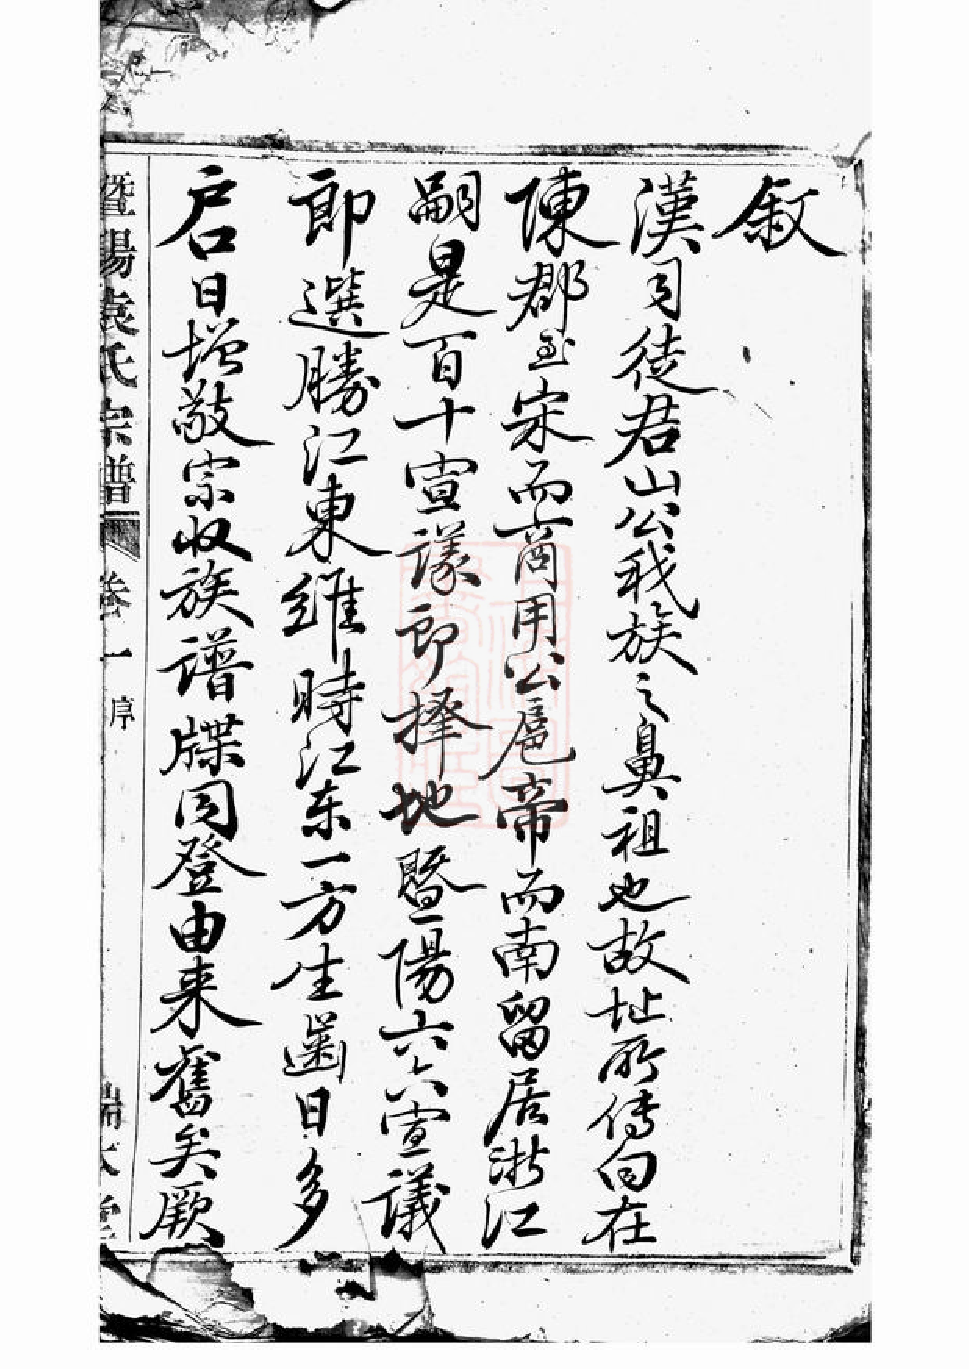 敘
漢司徒君山公我族之鼻祖也故址所傳向在
陳郡至宋而商用公扈帝而南留居浙江
嗣是百十宣議郎擇地暨陽六六宣議
郎選勝江東維時江东一方生齒日多
户口日增敬宗收族譜牒同登由来舊矣厥
暨陽袁氏宗譜 卷一 序